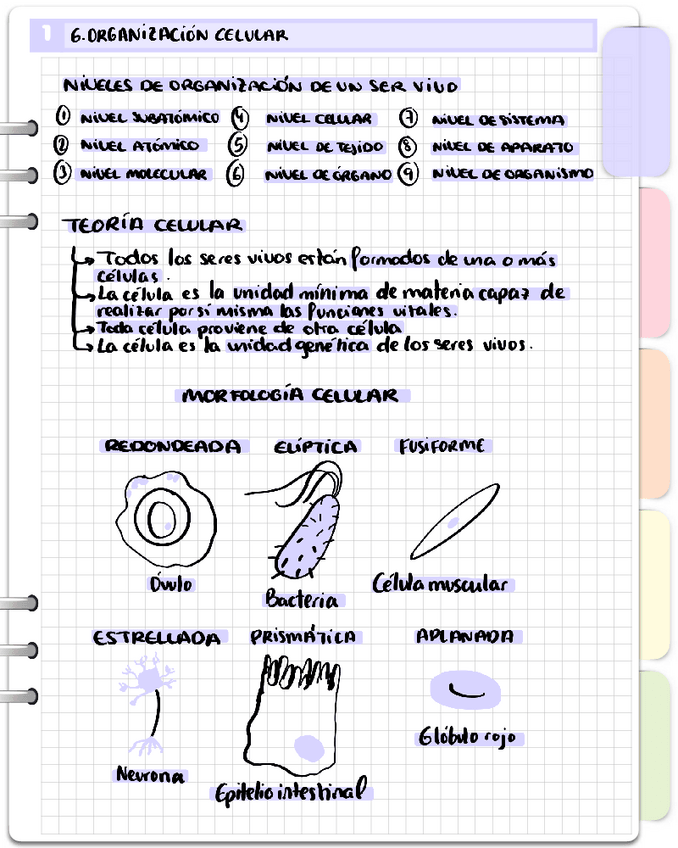 1 6. ORGANIZACIÓN CELULAR
NIVELES DE ORGANIZACIÓN DE UN SER VIVO
① NIVEL SUBATÓMICO ④ NIVEL CELULAR ⑦ NIVEL DE SISTEMA
② NIVEL ATÓMICO ⑤ NIVEL DE TEJIDO ⑧ NIVEL DE APARATO
③ NIVEL MOLECULAR ⑥ NIVEL DE ÓRGANO ⑨ NIVEL DE ORGANISMO
TEORÍA CELULAR
Todos los seres vivos están formados de una o más
células.
La célula es la unidad mínima de materia capaz de
realizar por sí misma las funciones vitales.
Toda célula proviene de otra célula
La célula es la unidad genética de los seres vivos.
MORFOLOGÍA CELULAR
REDONDEADA ELÍPTICA FUSIFORME
Óvulo
Bacteria
Célula muscular
ESTRELLADA PRISMÁTICA APLANADA
Neurona
Epitelio intestinal
Glóbulo rojo